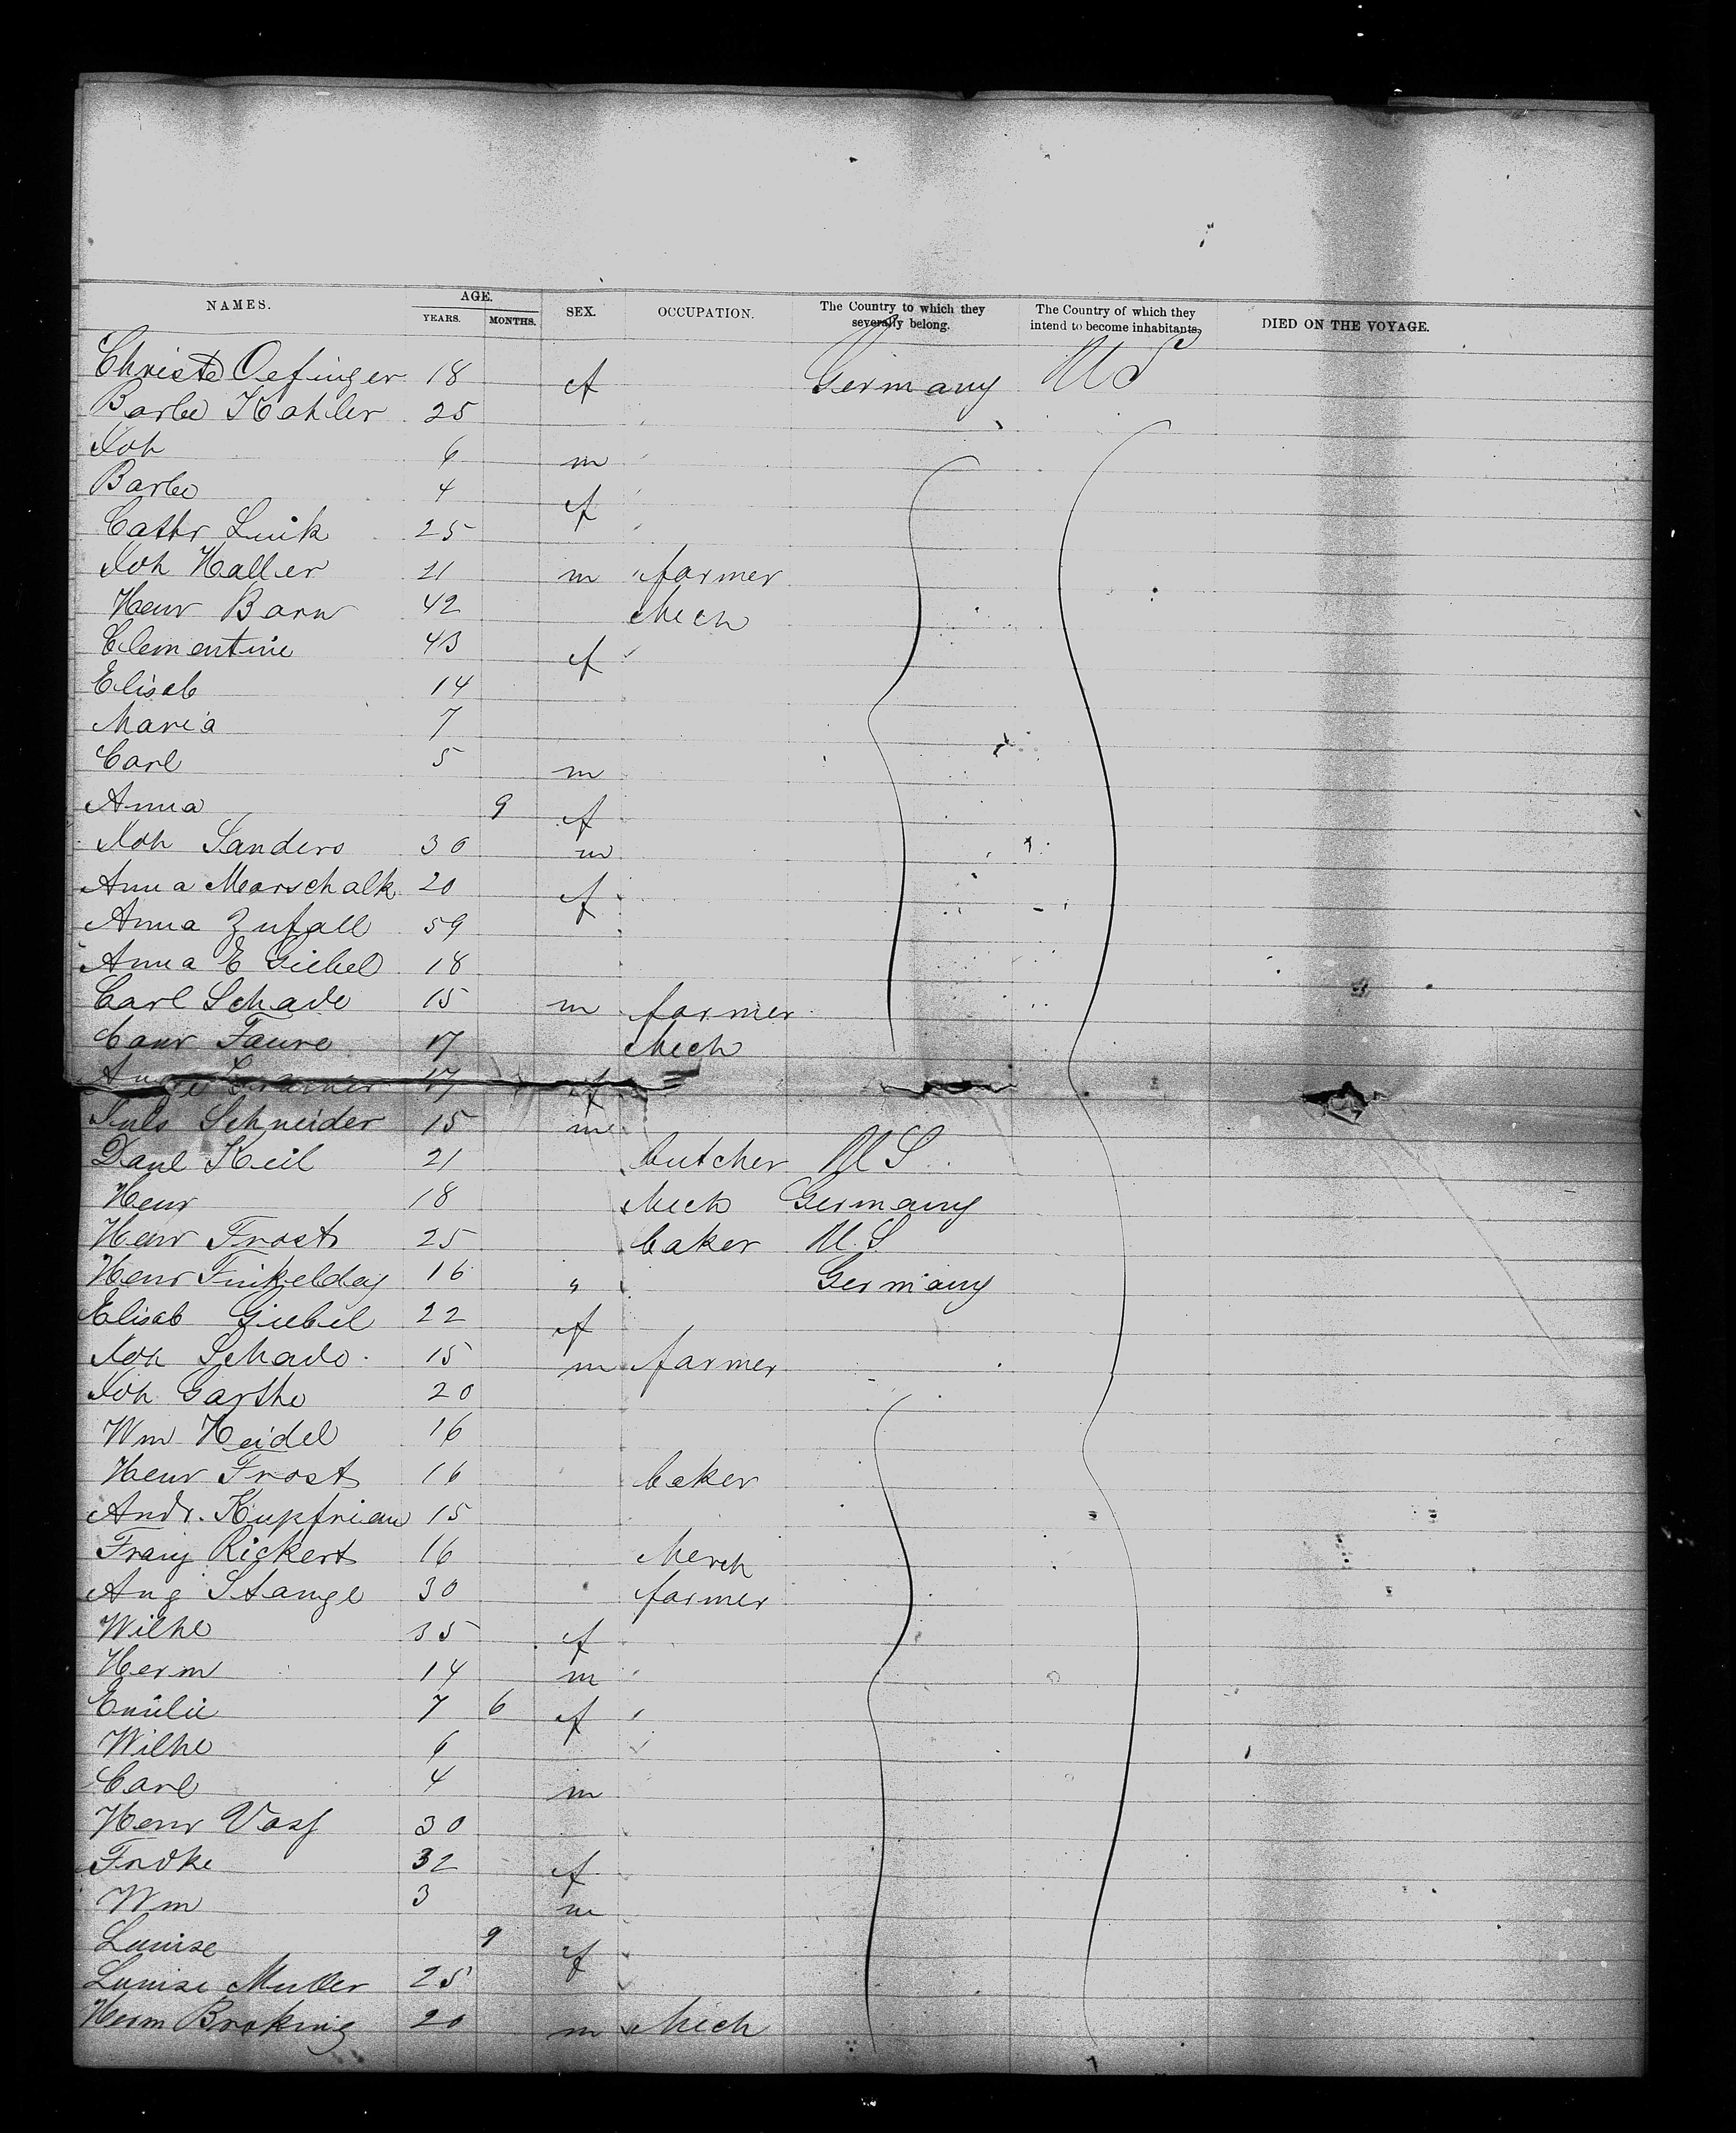 NAMES. AGE. YEARS. MONTHS. SEX. OCCUPATION. The Country to which they severally belong. The Country of which they intend to become inhabitants. DIED ON THE VOYAGE.
Christe Oefinger 18 f Germany U S
Barbe Kahler 25
Joh 6 m
Barbe 4 f
Cathr Link 25
Joh Haller 21 m farmer
Henr Barn 42 Mech
Clementine 43 f
Elisab 14
Maria 7
Carl 5 m
Anna 9 f
Joh Sanders 30 m
Anna Marschalk 20 f
Anna Zufall 59
Anna E Giebel 18
Carl Schade 15 m farmer
Conr Faure 17 Mech
17 f
Juls Schneider 15 m
Danl Keil 21 butcher U S
Henr 18 Mech Germany
Henr Frost 25 baker U. S
Henr Finkeldey 16 " Germany
Elisab Giebel 22 f
Joh Schade 15 m farmer
Joh Garthe 20
Wm Heidel 16
Henr Frost 16 baker
Andr. Kupfrian 15
Franz Rickert 16 Merch
Aug Stange 30 farmer
Wilhe 35 f
Herm 14 m
Emilie 7 6 f
Wilhe 6
Carl 4 m
Henr Vass 30
Frdke 32 f
Wm 3 m
Louise 9 f
Louise Muller 25
Herm Broking 20 m Mech